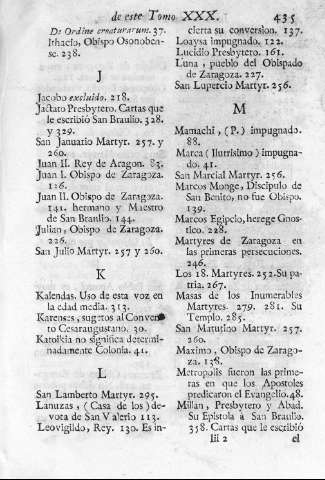 de este Tomo XXX. 435
De Ordine creaturarum. 37.
Ithacio, Obispo Osonoben-
se. 238.
J
Jacobo excluido. 218.
Jactato Presbytero. Cartas que
le escribió San Braulio. 328.
y 329.
San Januario Martyr. 257. y
260.
Juan II. Rey de Aragon. 83.
Juan I. Obispo de Zaragoza.
116.
Juan II. Obispo de Zaragoza.
141. hermano y Maestro
de San Braulio. 144.
Julian, Obispo de Zaragoza.
226.
San Julio Martyr. 257 y 260.
K
Kalendas. Uso de esta voz en
la edad media. 313.
Karenses, sugetos al Conven-
to Cesaraugustano. 30.
Katoikia no significa determi-
nadamente Colonia. 41.
L
San Lamberto Martyr. 295.
Lanuzas, (Casa de los) de-
vota de San Valerio 113.
Leovigildo, Rey. 130. Es in-
cierta su conversion. 137.
Loaysa impugnado. 122.
Lucidio Presbytero. 161.
Luna, pueblo del Obispado
de Zaragoza. 227.
San Lupercio Martyr. 256.
M
Mamachi, (P.) impugnado.
88.
Marca (Ilustrisimo) impugna-
do. 41.
San Marcial Martyr. 256.
Marcos Monge, Discipulo de
San Benito, no fue Obispo.
139.
Marcos Egipcio, herege Gnos-
tico. 228.
Martyres de Zaragoza en
las primeras persecuciones.
246.
Los 18. Martyres. 252. Su pa-
tria. 267.
Masas de los Inumerables
Martyres. 279. 281. Su
Templo. 285.
San Matutino Martyr. 257.
260.
Maximo, Obispo de Zarago-
za. 138.
Metropolis fueron las prime-
ras en que los Apostoles
predicaron el Evangelio. 48.
Millan, Presbytero y Abad.
Su Epistola à San Braulio.
358. Cartas que le escribió
Iii 2 el